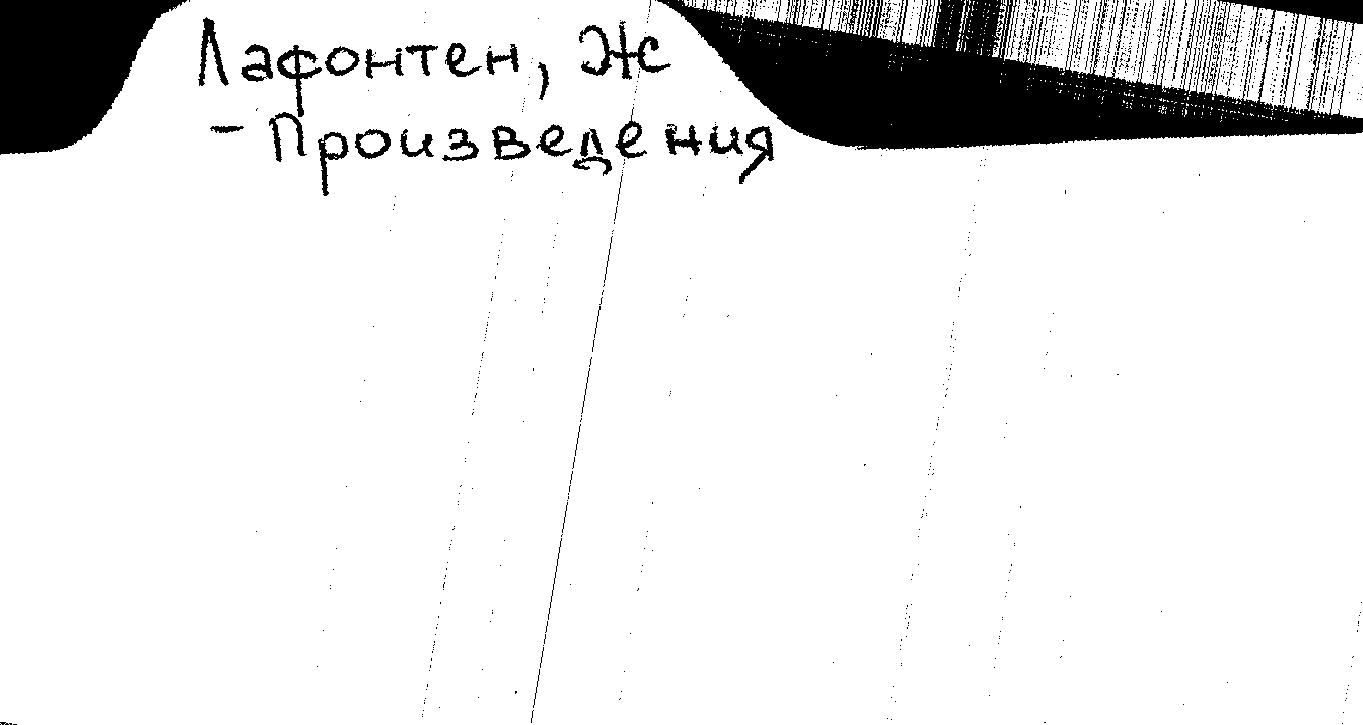 Лафонтен, Ж
- Произведения